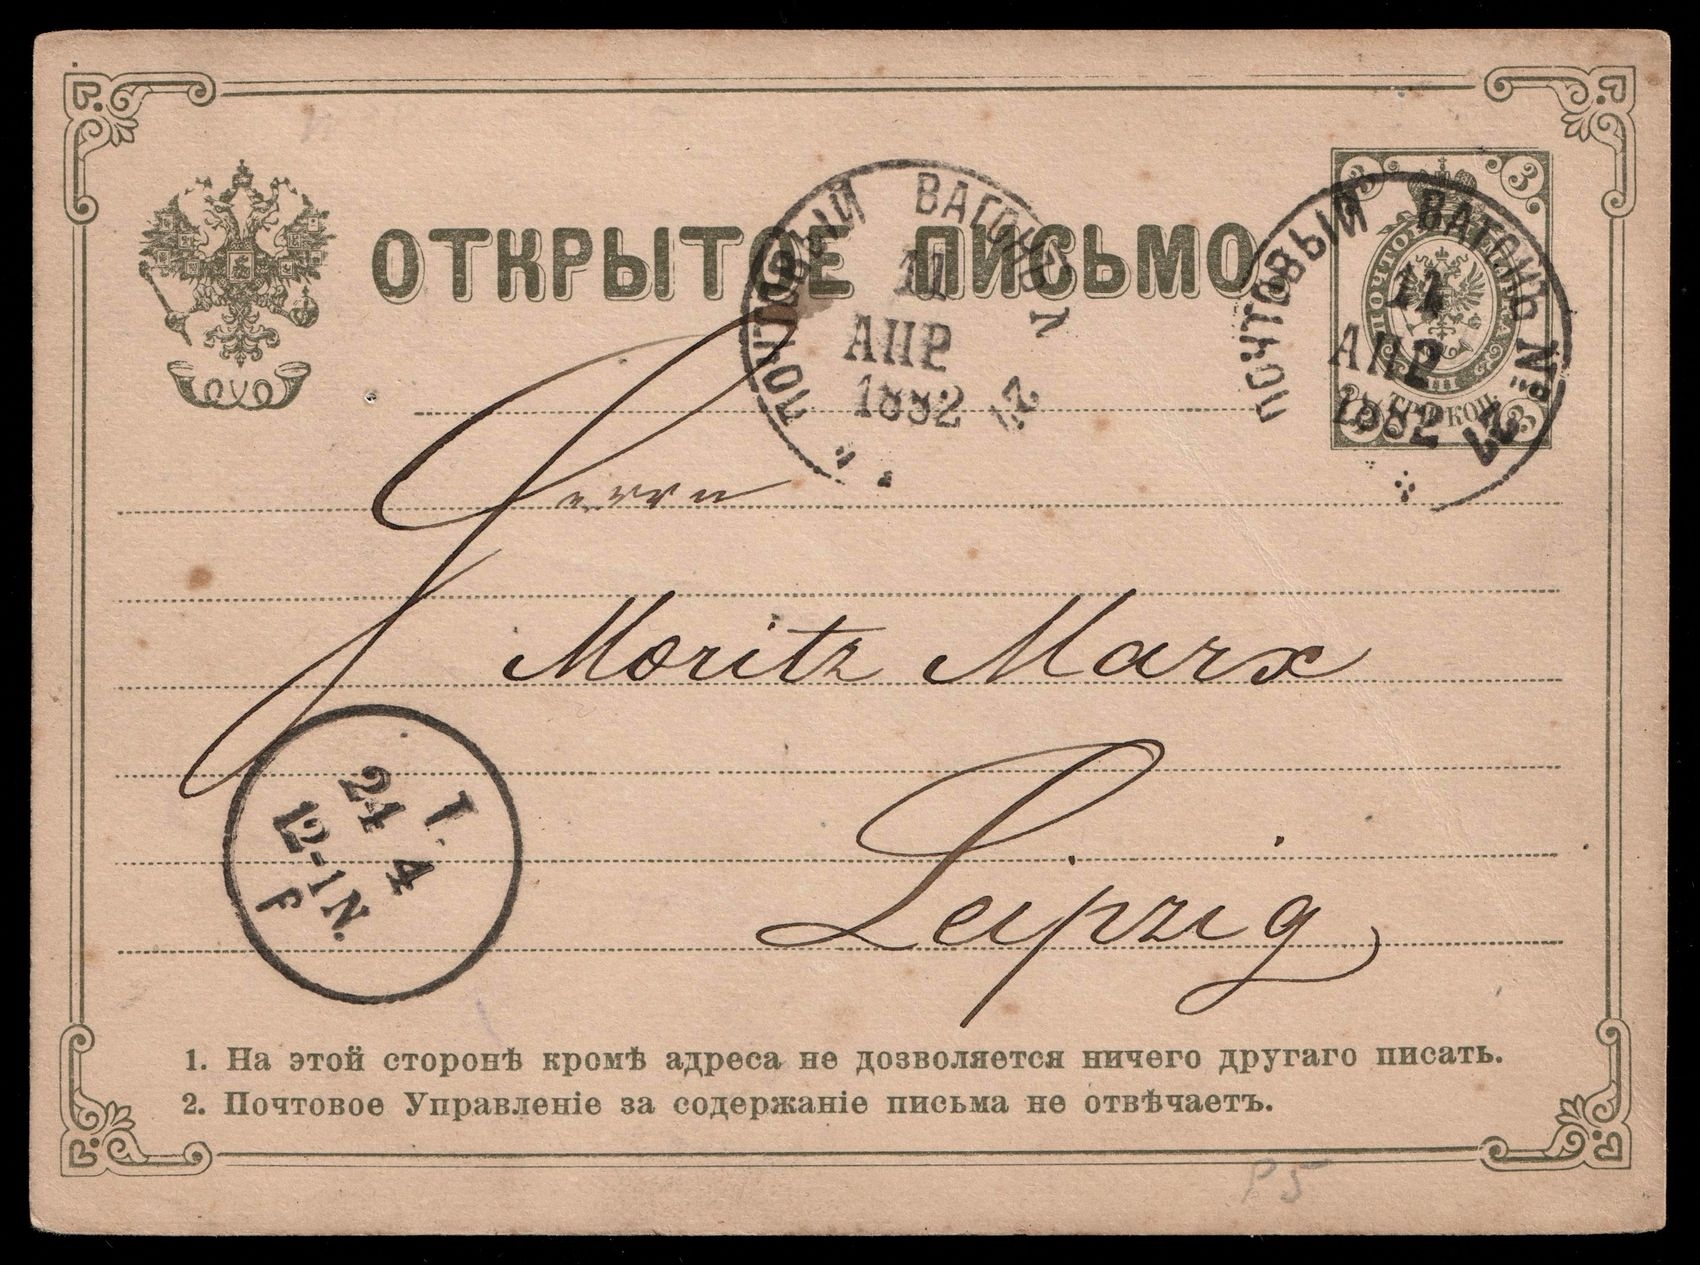 ОТКРЫТОЕ ПИСЬМО
ПОЧТОВЫЙ ВАГОНЪ №
11
АПР
1882
ПОЧТОВЫЙ ВАГОНЪ №
11
АПР
1882
3 3
ТРИ КОП.
3 3
Herrn
Moritz Marx
Leipzig
I.
24 4
12-1 N.
F
1. На этой сторонѣ кромѣ адреса не дозволяется ничего другаго писать.
2. Почтовое Управленіе за содержаніе письма не отвѣчаетъ.
P5